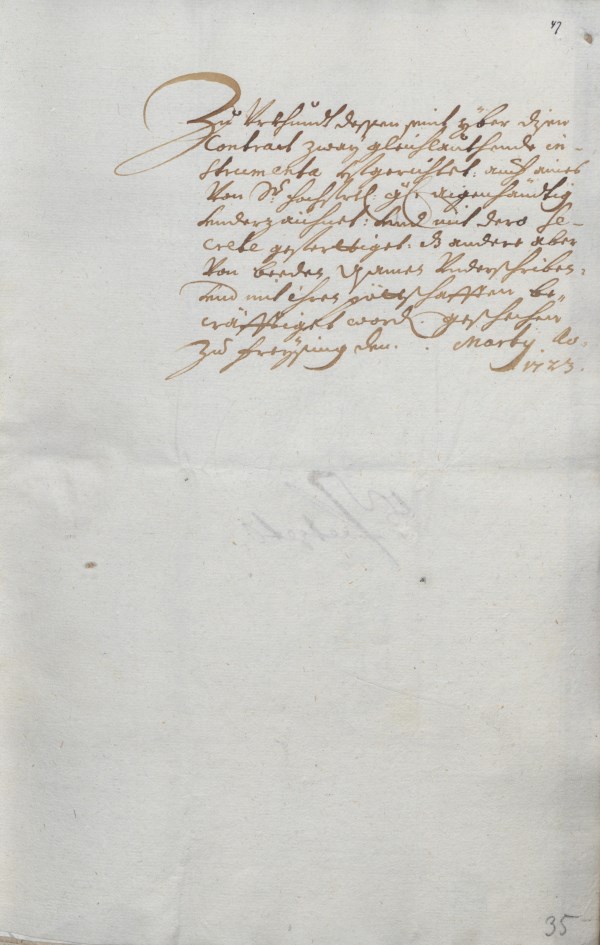 47
Zu Urkhundt dessen seint yber disen
Contract zway gleichlauthende in-
strumenta aufgerichtet: auch aines
von Sr. hochfrtl: Gdl. aigenhändtig
underzaichnet: und mit dero Se-
crete gefertiget: dz andere aber
von beeden Asamen underschriben,
und mit ihren pöttschafften be-
cräfftiget word. geschechen
zu Freysing den. . Marty Ao.
1723.
35